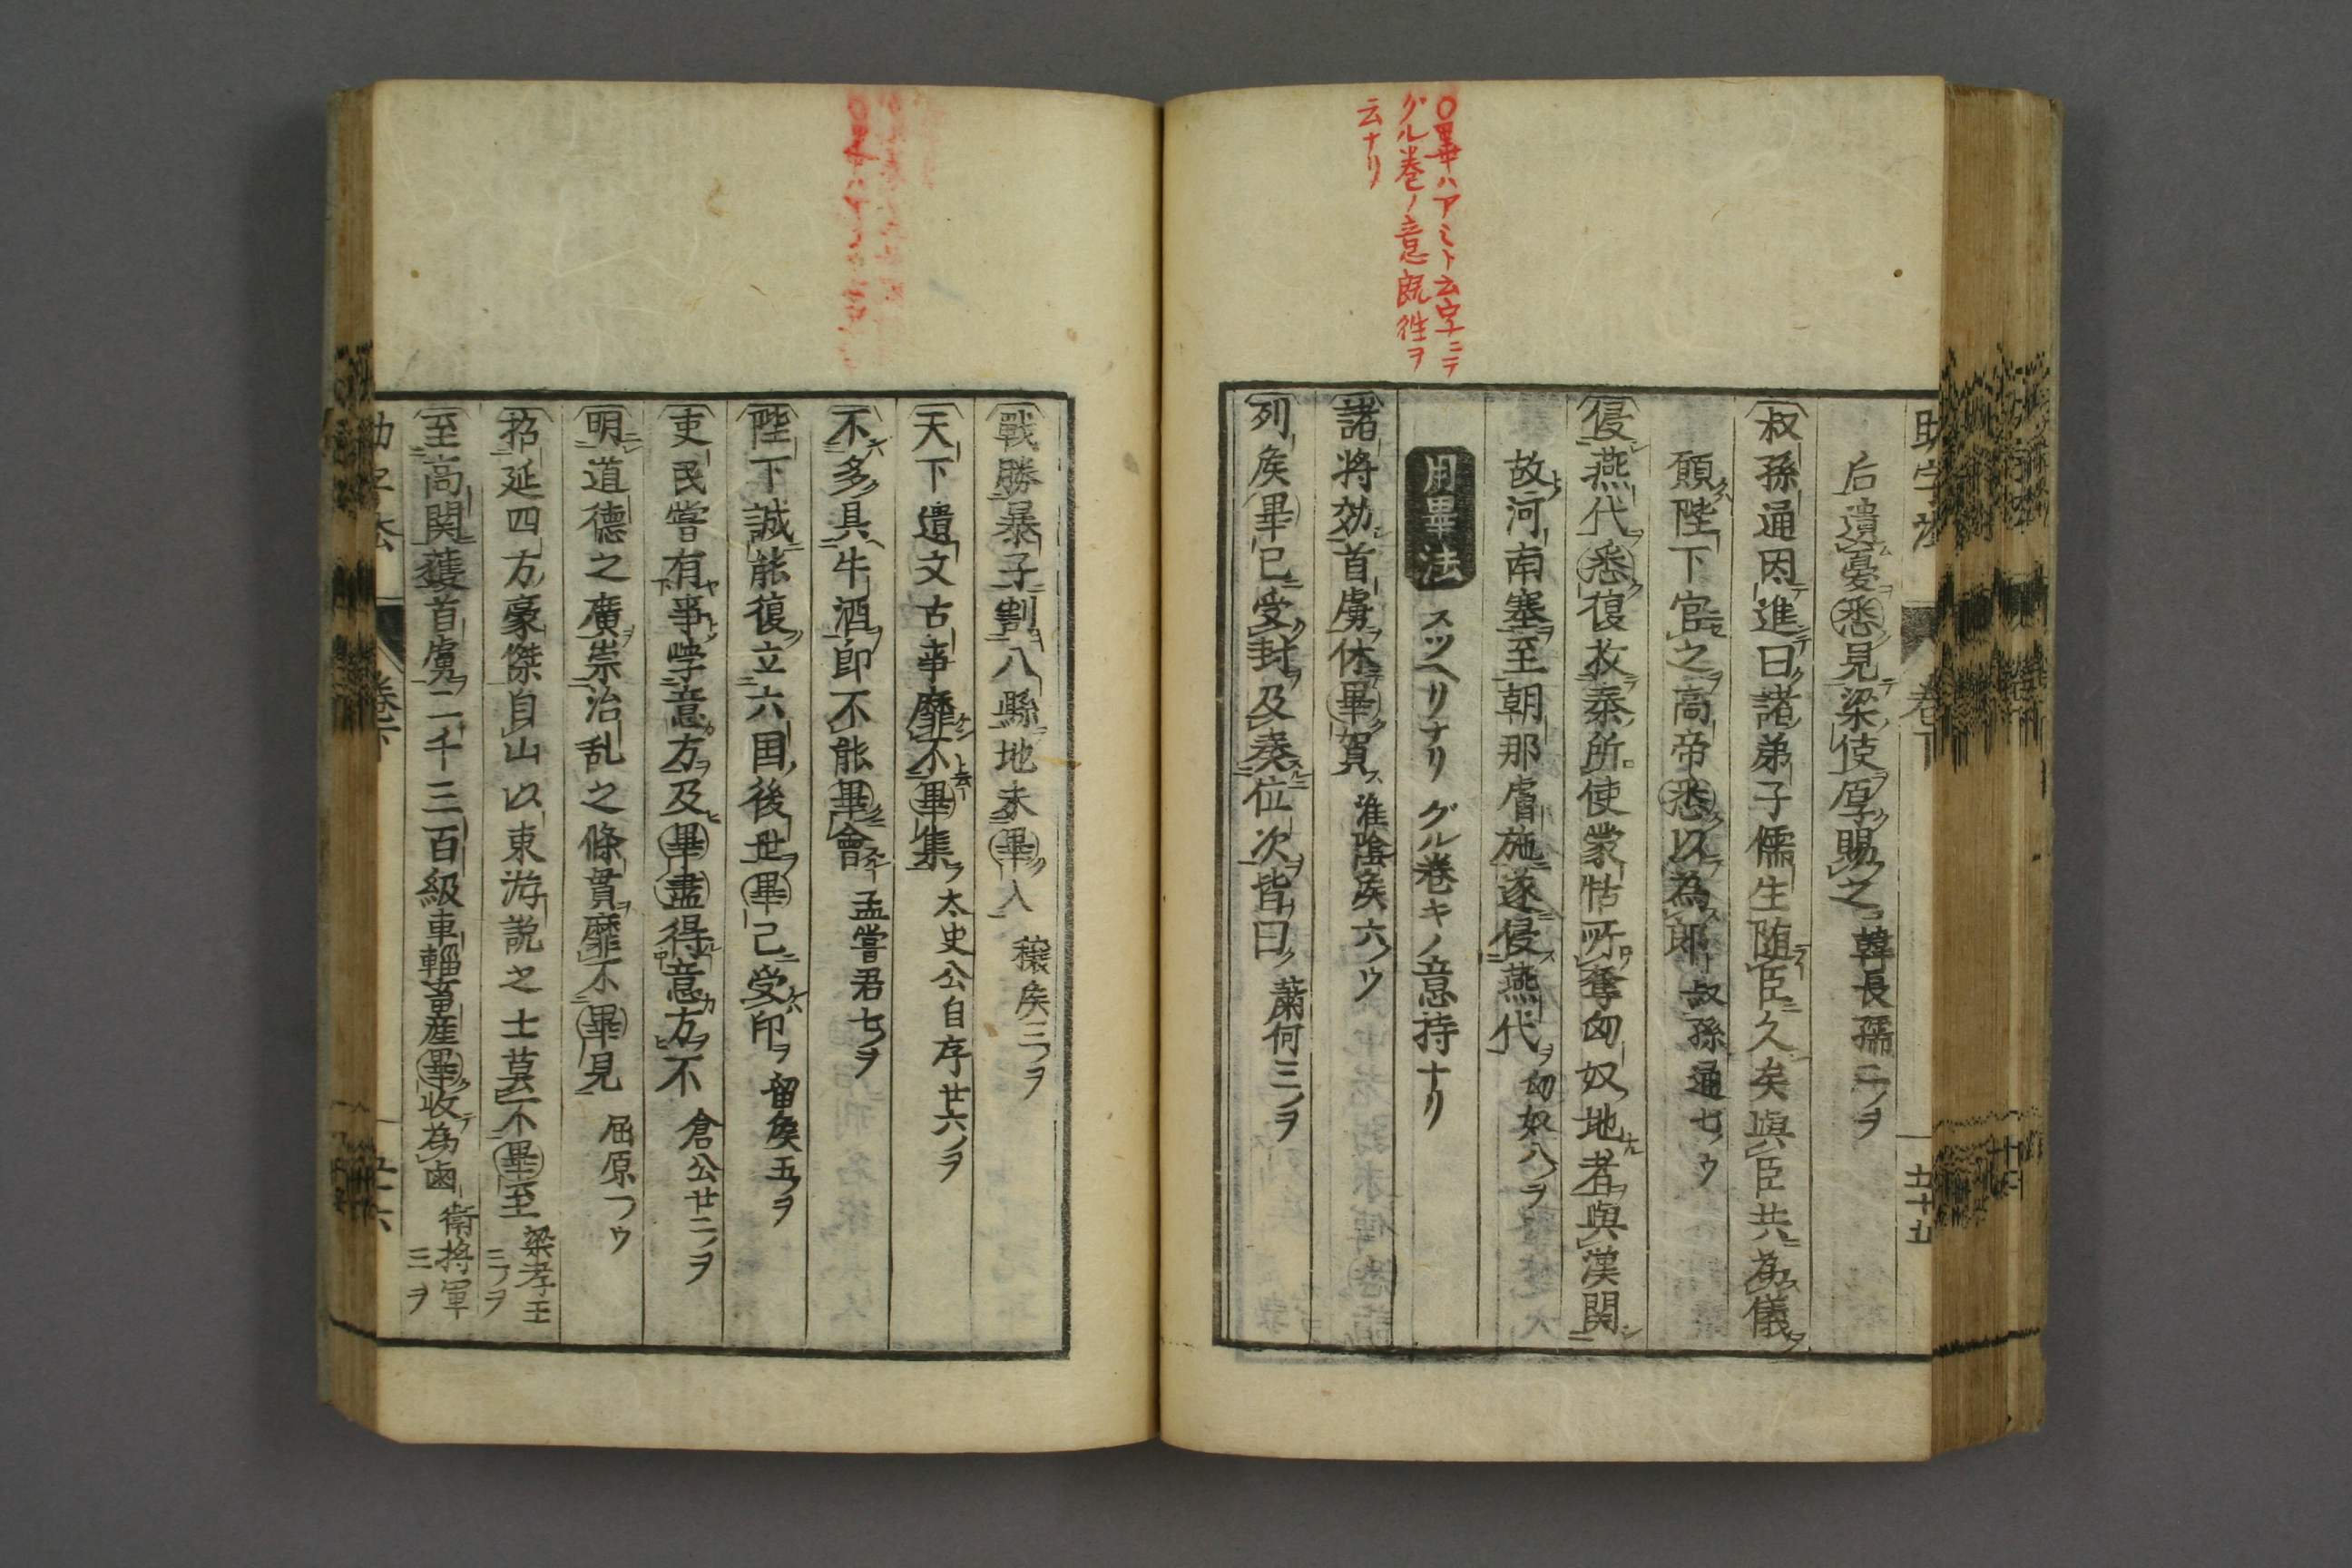 〇畢ハアミト云字ニテ
グル巻ノ意既徃ヲ
云ナリ
助字法 卷下 五十五
后遺憂悉見梁使厚賜之 韓長孺二ノヲ
叔孫通因進曰諸弟子儒生随臣久矣與臣共為儀
願陛下官之高帝悉以為郎 叔孫通七ノウ
侵燕代悉復收秦所使蒙恬所奪匈奴地者與漢関
故河南塞至朝那膚施遂侵燕代 匈奴八ノヲ
用畢法 スツヘリナリ グル巻キノ意持ナリ
諸将効首虜休畢賀 淮陰矦六ノウ
列矦畢已受封及奏位次皆曰 蕭何三ノヲ
戰勝暴子割八縣地未畢入 穰矦三ノヲ
天下遺文古事靡不畢集 太史公自序廿六ノヲ
不多具牛酒即不能畢會 孟嘗君七ノヲ
陛下誠能復立六国後世畢已受印 留矦五ノヲ
吏民嘗有事学意方及畢盡得意方不 倉公廿二ノヲ
明道德之廣崇治乱之條貫靡不畢見 屈原一ノウ
招延四方豪傑自山以東游説之士莫不畢至 梁孝王三ノヲ
至高関獲首虜二千三百級車輜畜産畢收為鹵 衛将軍三ノヲ